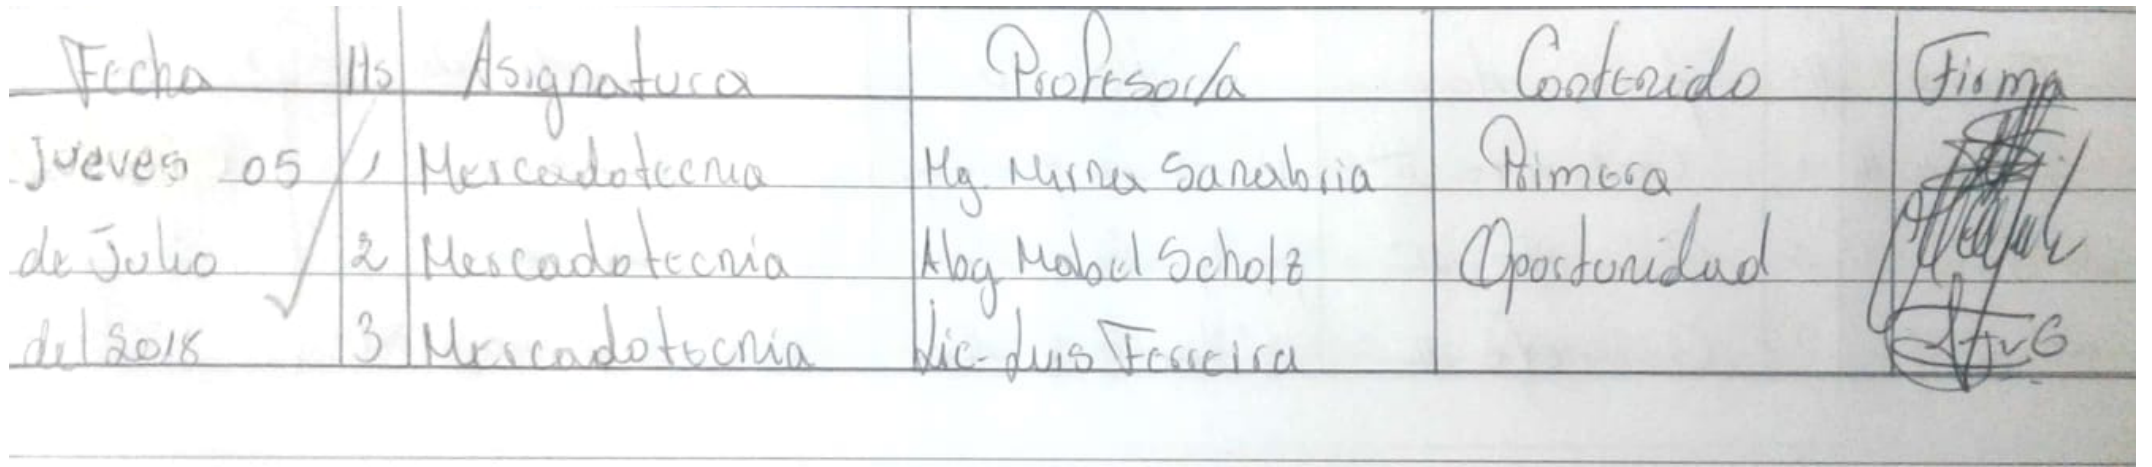 Fecha Hs Asignatura Profesor/a Contenido Firma
Jueves 05 1 Mercadotecnia Mg. Mirna Sanabria Primera
de Julio 2 Mercadotecnia Abg Mabel Scholz Oportunidad
del 2018 3 Mercadotecnia Lic-Luis Ferreira